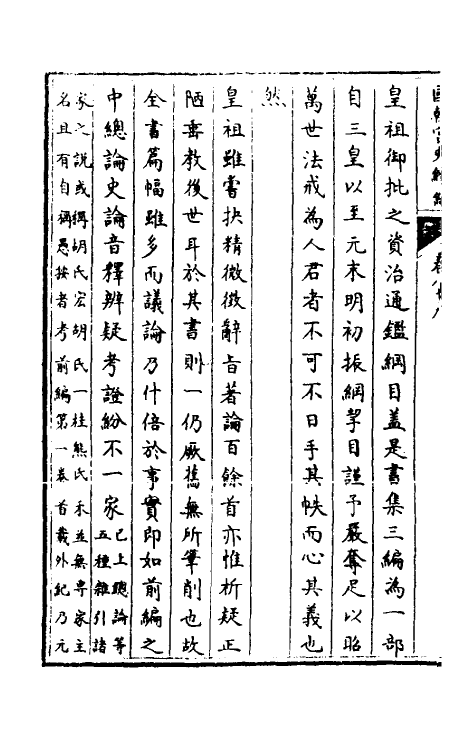 國朝宮史續編 卷八十八
皇祖御批之資治通鑑綱目蓋是書集三編為一部
自三皇以至元末明初振綱挈目謹予嚴奪足以昭
萬世法戒為人君者不可不日手其帙而心其義也
然
皇祖雖嘗抉精微徵辭旨著論百餘首亦惟析疑正
陋垂教後世耳於其書則一仍厥舊無所筆削也故
全書篇幅雖多而議論乃什倍於事實即如前編之
中總論史論音釋辨疑考證紛不一家
已上總論等
五種雜引諸
家之說或稱胡氏宏胡氏一桂熊氏禾並無專家主
名且有自稱愚按者考前編第一卷首載外紀乃元